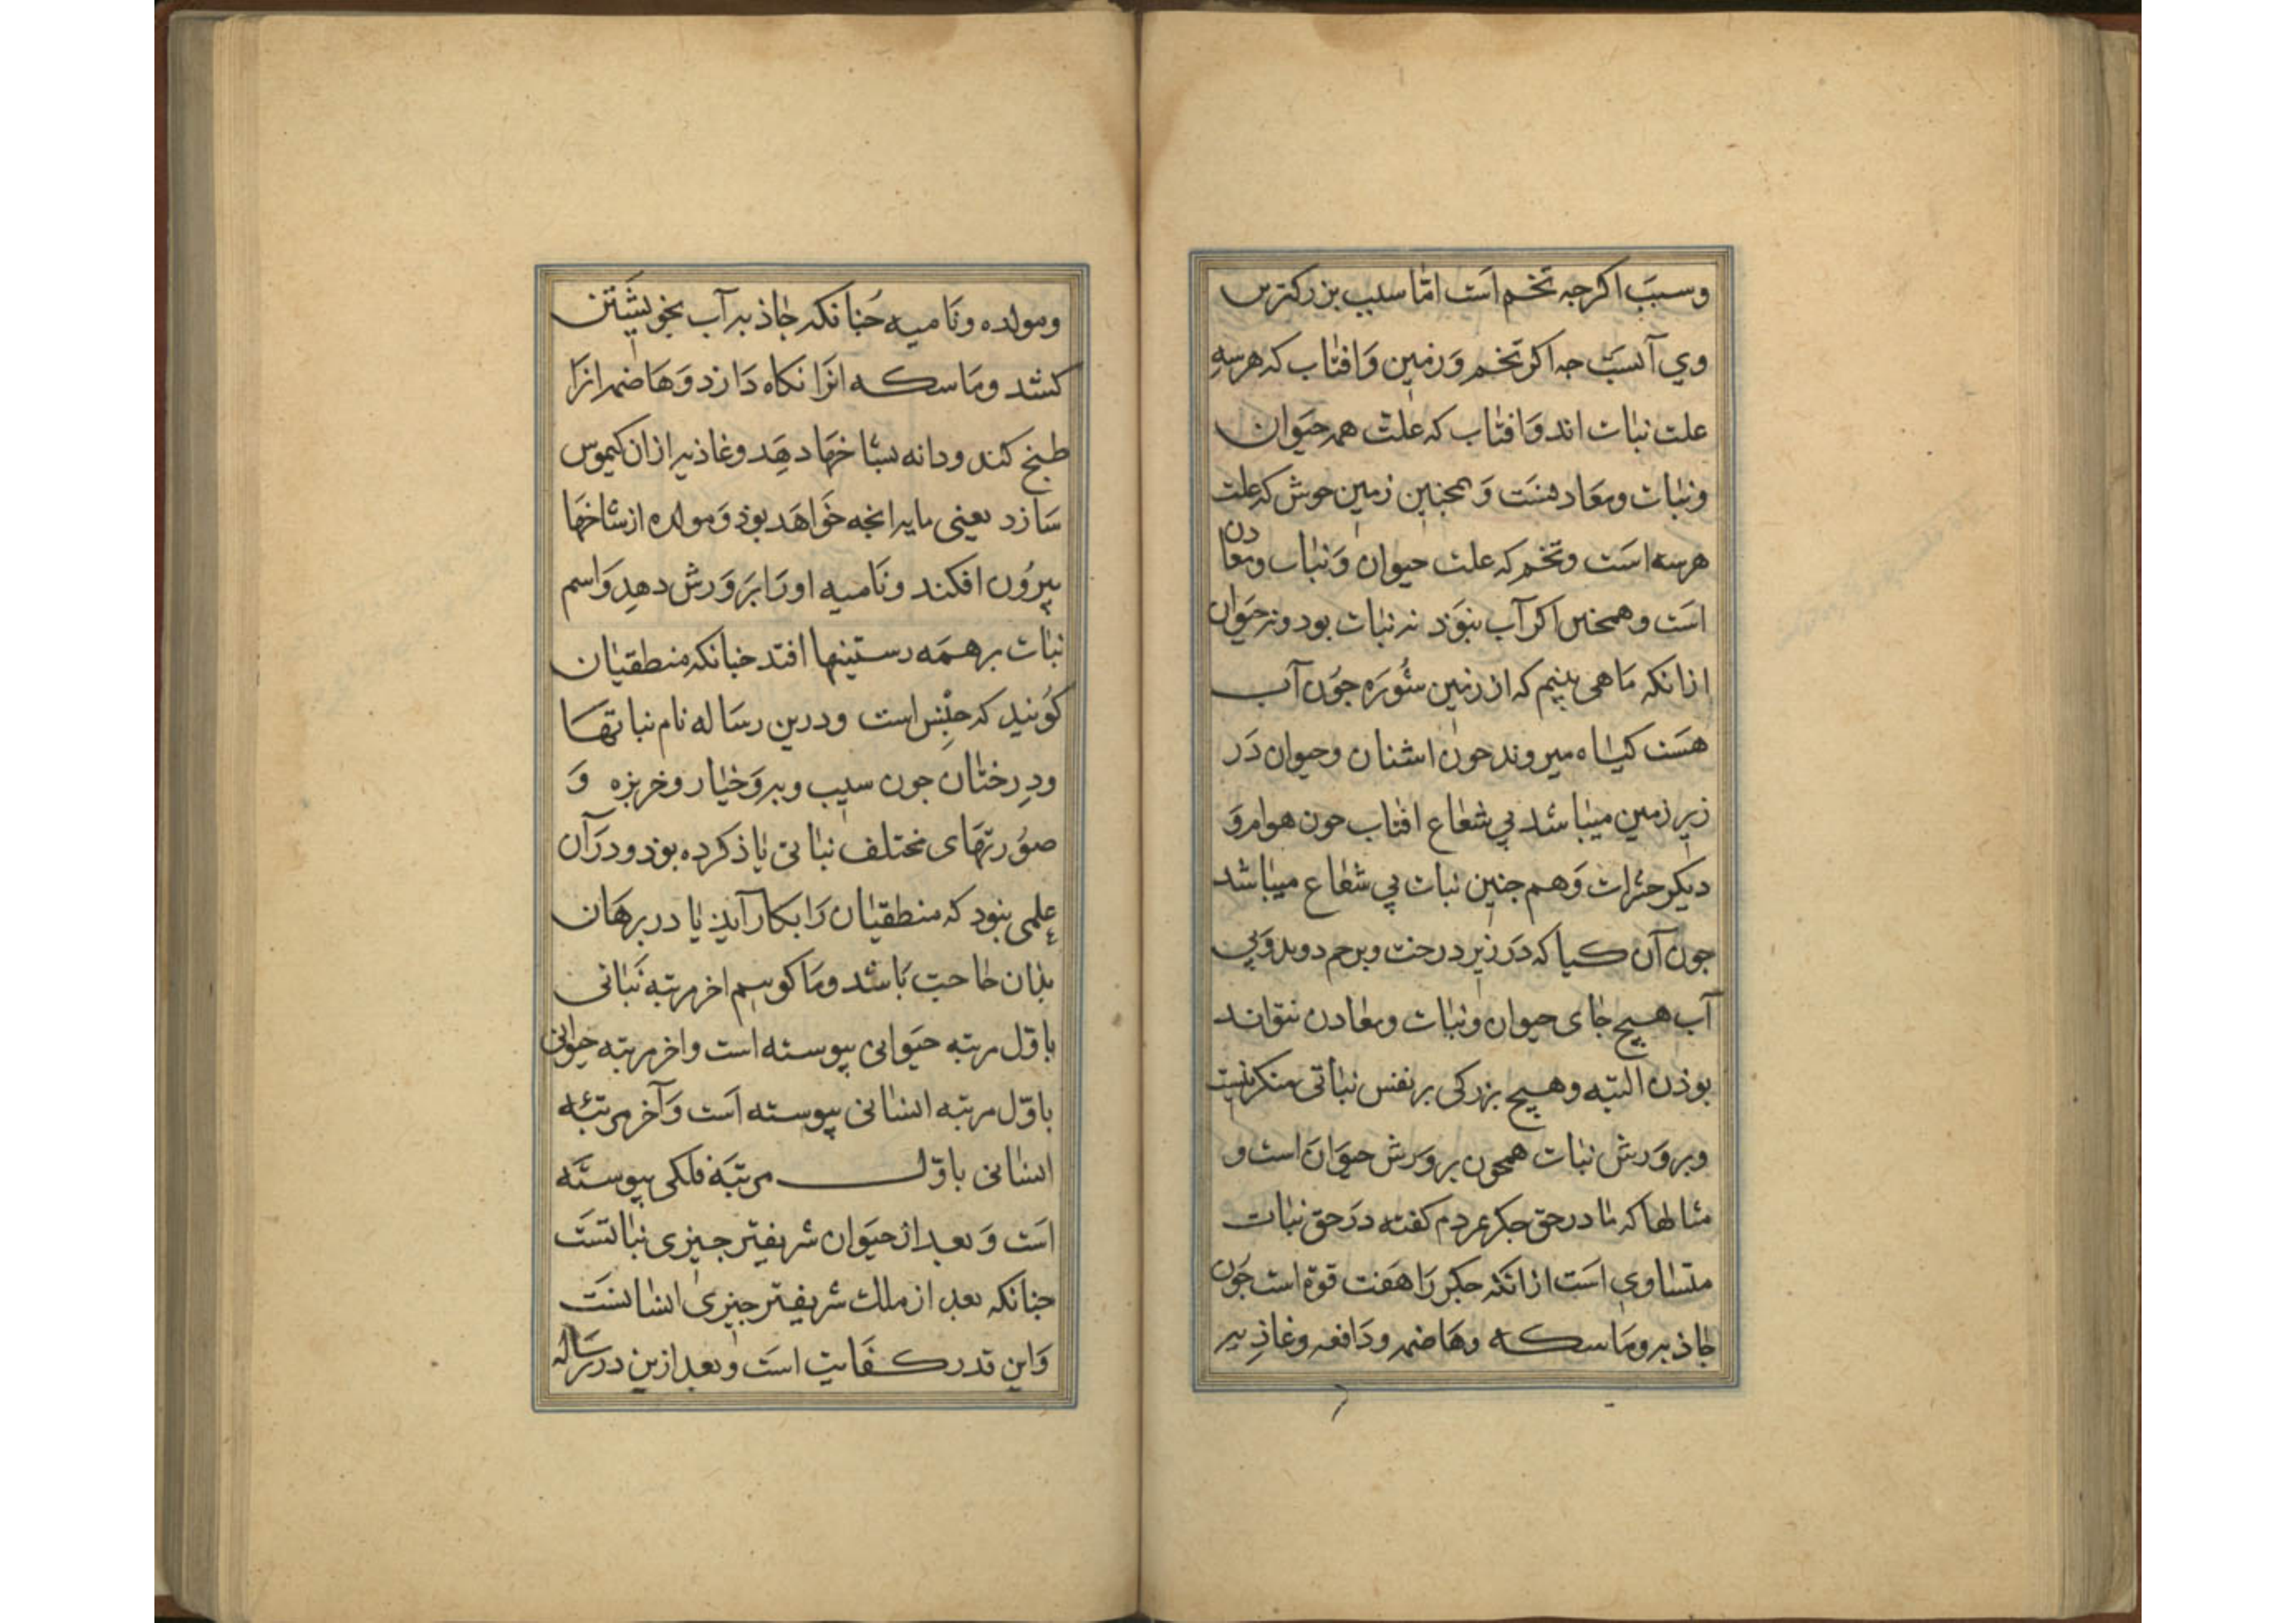 وسبب اکرجه تخم است امّا سبب بزرکترین
وی آبست جه اکر تخم و زمین و افتاب که هر سه
علت نبات اند و افتاب که علت همه حیوان
ونبات ومعادنست و همجنین زمین خوش که علت
هر سه است وتخم که علت حیوان و نبات ومعادن
است وهمجنین اکر آب نبوذ نه نبات بود ونه حیوان
ازانکه ما همی بینیم که از زمین شوره جون آب
هست کیاه میروند جون اشنان وحیوان در
زیر زمین میباشد بی شعاع افتاب جون هوام و
دیکر حشرات و هم جنین نبات بی شعاع میباشد
جون آن کیا که در زیر درخت وبرخم دوید و بی
آب هیج جای حیوان ونبات ومعادن نتواند
بوذن البته وهیج بزرکی بر نفس نباتی منکر نیست
وپرورش نبات همجون پرورش حیوان است و
مثالها که ما در حق جکر مردم کفته در حق نبات
متساوی است ازانکه جکر را هفت قوة است جون
جاذبه وماسکه وهاضمه ودافعه وغاذیه
ومولده ونامیه جنانکه جاذبه آب بخویشتن
کشد وماسکه انرا نکاه دارد و هاضمه انرا
طبخ کند ودانه بشاخها دهد وغاذیه ازان کیموس
سازد یعنی مایه انجه خواهد بوذ و مولده از شاخها
بیرون افکند ونامیه اورا پرورش دهد و اسم
نبات بر همه رستینها افتد جنانکه منطقیان
کویند که جنس است ودرین رساله نام نباتها
ودرختان جون سیب وبه و خیار وخربزه و
صورتهای مختلف نباتی یاذ کرده بوذ و در آن
علمی نبود که منطقیان را بکار آید یا در برهان
بذان حاجت باشد وما کوییم اخر مرتبه نباتی
باوّل مرتبه حیوانی پیوسته است واخر مرتبه حیوانی
باوّل مرتبه انسانی پیوسته است و آخر مرتبه
انسانی باوّل مرتبه فلکی پیوسته
است و بعد از حیوان شریفتر جیزی نباتست
جنانکه بعد از ملک شریفتر جیزی انسانست
و این قدر کفایت است وبعد ازین در رساله